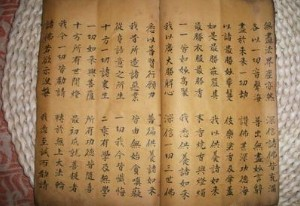 無盡法界塵 深信諸佛皆充滿
各以一切音聲海 普出無盡妙言辭
盡於未來一切劫 讚佛甚深功德海
以諸最勝妙華鬘 伎樂塗香及傘蓋
如是最勝莊嚴具 我以供養諸如來
最勝衣服最勝香 末香燒香與燈燭
一一皆如妙高聚 我悉供養諸如來
我以廣大勝解心 深信一切三世佛
悉以普賢行願力 普徧供養諸如來
我昔所造諸惡業 皆由無始貪瞋癡
從身語意之所生 一切我今皆懺悔
十方一切諸眾生 二乘有學及無學
一切如來與菩薩 所有功德皆隨喜
十方所有世間燈 最初成就菩提者
我今一切皆勸請 轉於無上妙法輪
諸佛若欲示涅槃 我悉至誠而勸請